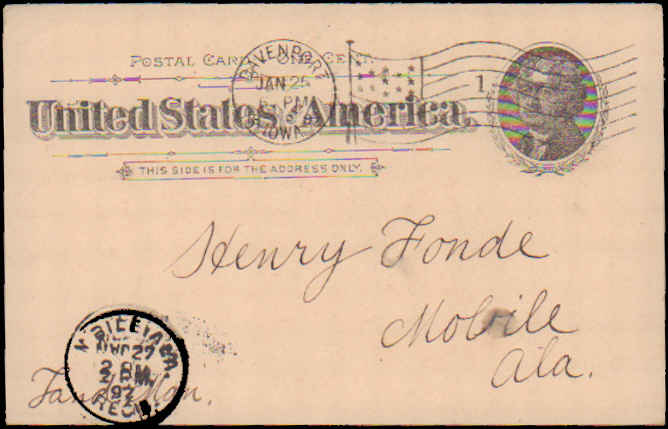 POSTAL CARD ONE CENT.
DAVENPORT
JAN 25
PM
IOWA
1
United States of America.
THIS SIDE IS FOR THE ADDRESS ONLY.
Henry Fonde
Mobile
Ala.
MOBILE ALA.
27
2 PM
97
REC'D